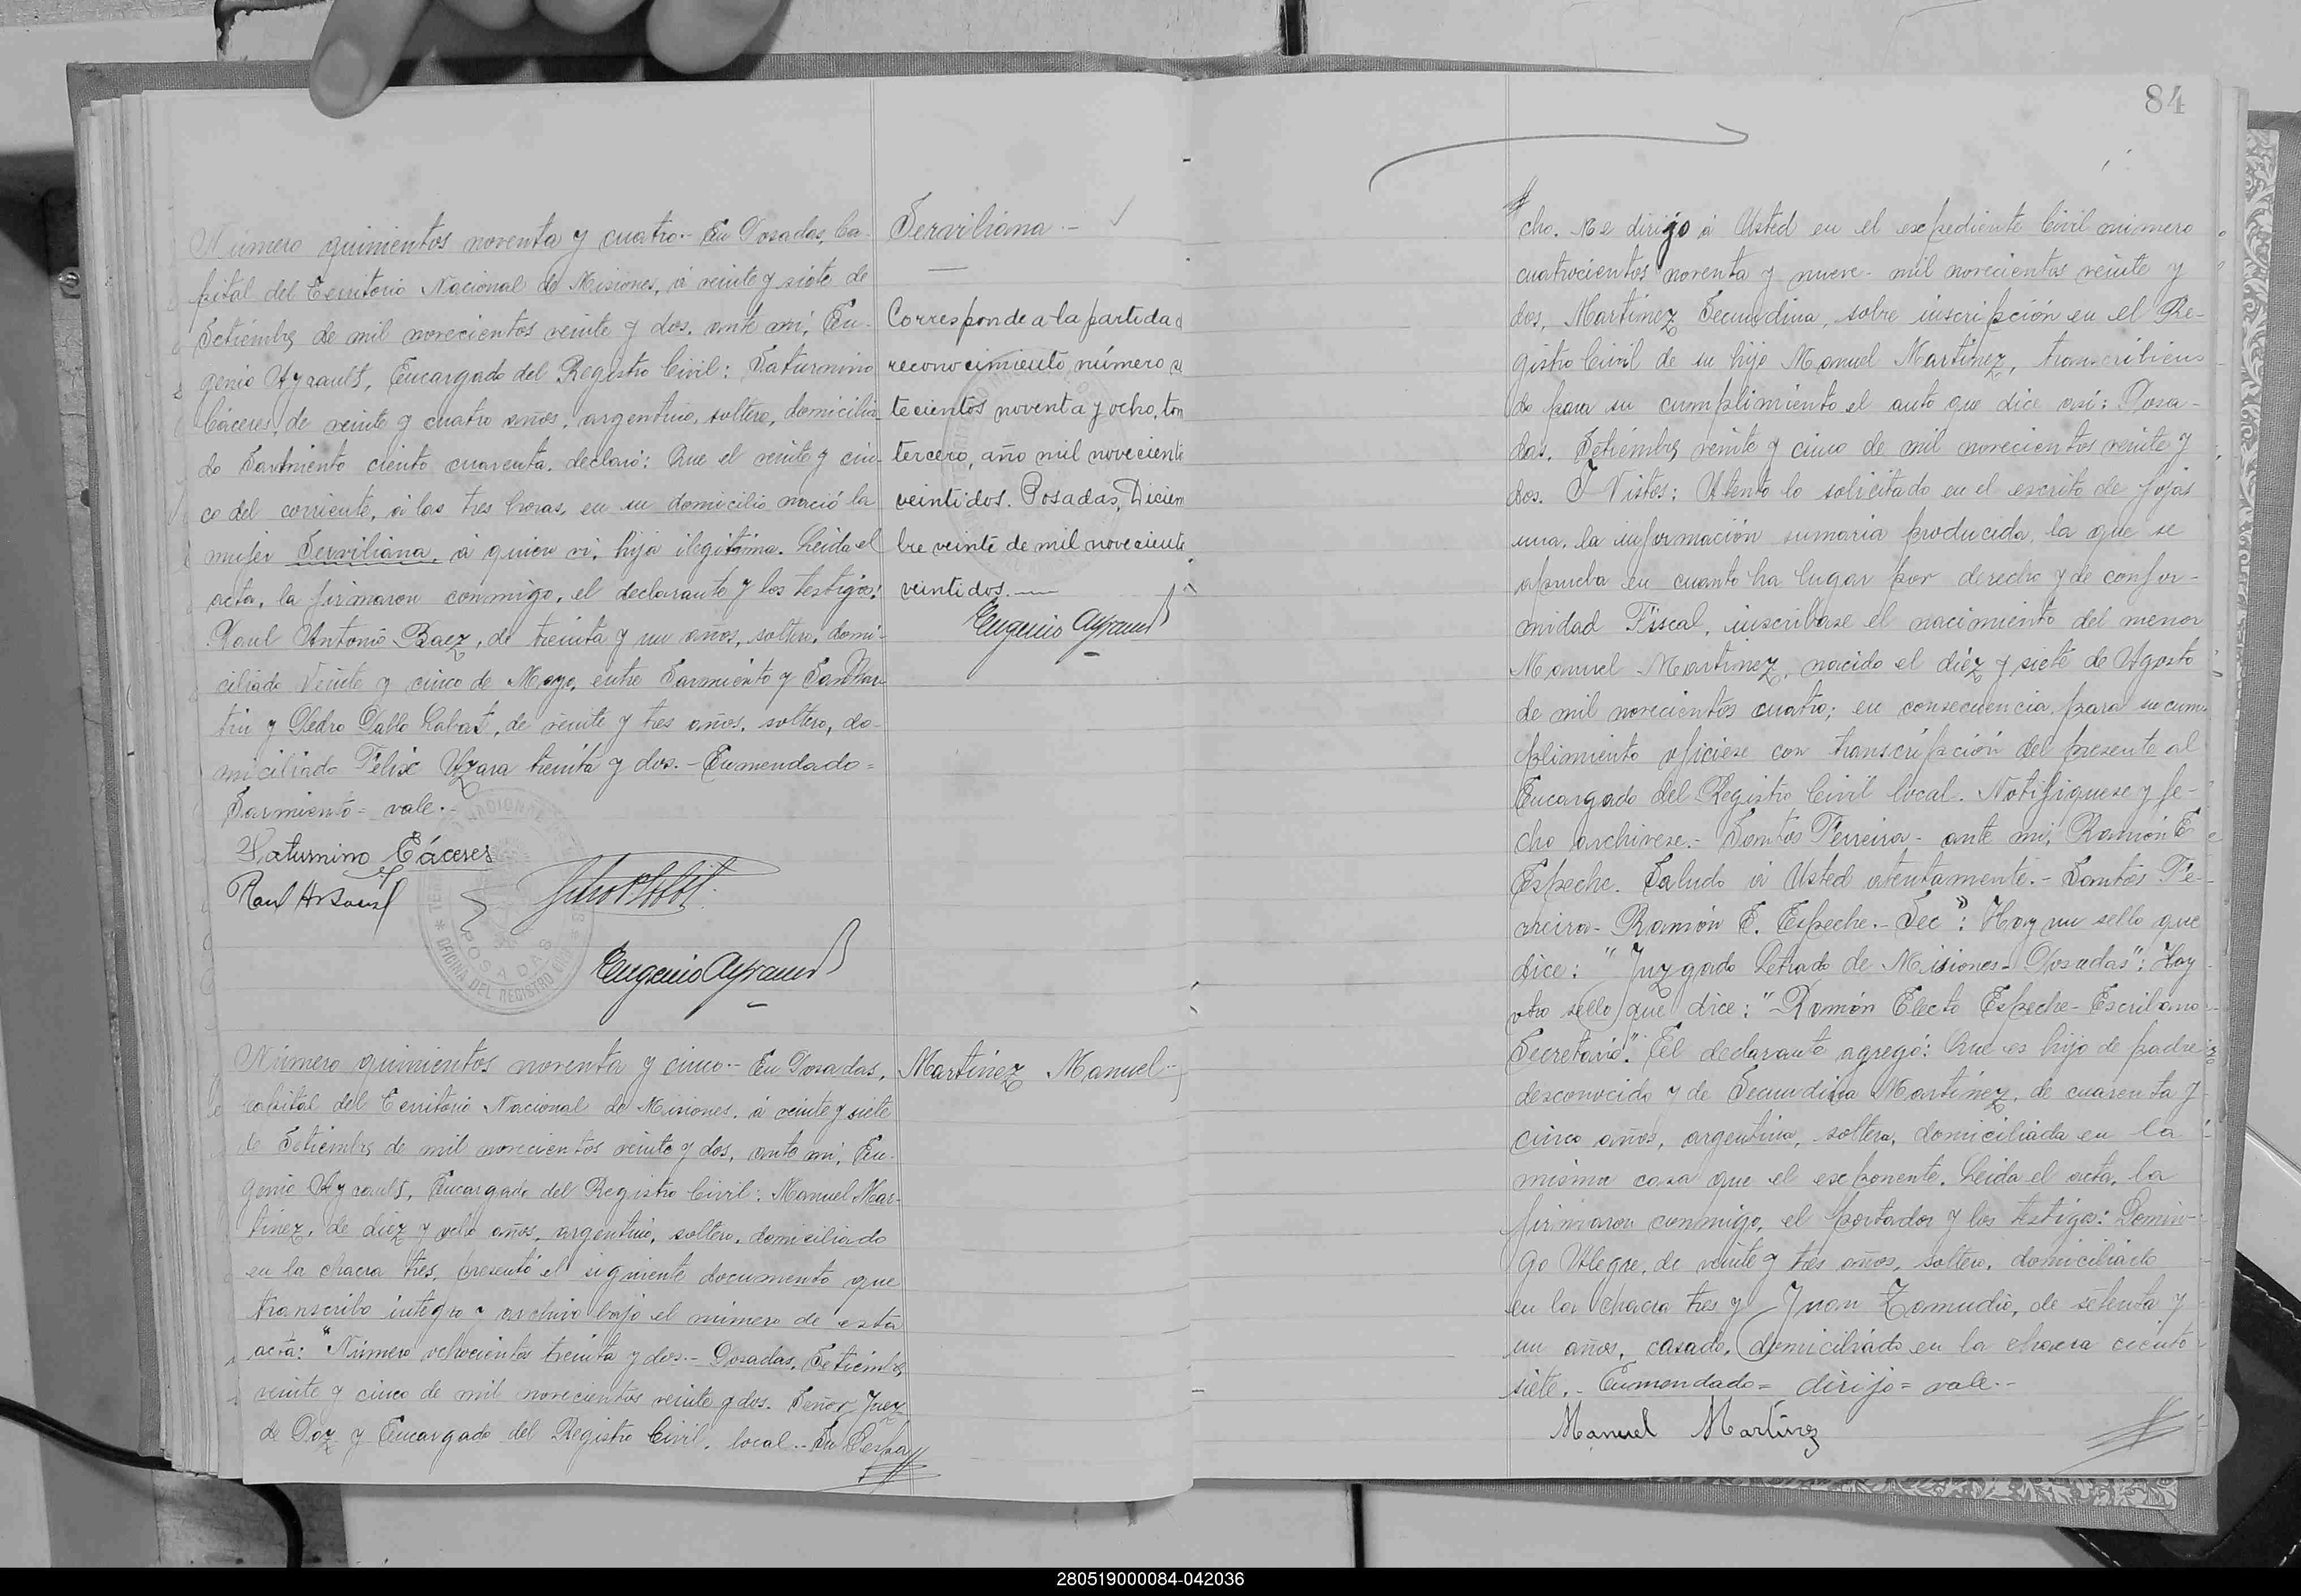 Número quinientos noventa y cuatro.- En Posadas, Ca-
pital del Territorio Nacional de Misiones, á veinte y siete de
Setiembre de mil novecientos veinte y dos, ante mí, Eu-
genio Ayrault, Encargado del Registro Civil: Saturnino
Cáceres, de veinte y cuatro años, argentino, soltero, domicilia-
do Sarmiento ciento cuarenta, declaró: Que el veinte y cin-
co del corriente, á las tres horas, en su domicilio nació la
mujer Serviliana, á quien vi, hija ilegítima. Leida el
acta, la firmaron conmigo, el declarante y los testigos:
Raul Antonio Baez, de treinta y un años, soltero, domi-
ciliado Veinte y cinco de Mayo, entre Sarmiento y San Mar-
tin y Pedro Pablo Labat, de veinte y tres años, soltero, do-
miciliado Felix Azara treinta y dos.- Enmendado=
Sarmiento= vale.-
Saturnino Cáceres
Raul A Baez
Eugenio Ayrault
POSADAS
OFICINA DEL REGISTRO CIVIL
Serviliana.-
Corresponde a la partida d
reconocimiento número se
tecientos noventa y ocho, tom
tercero, año mil noveciento
veintidos. Posadas, Diciem
bre veinte de mil noveciento
veintidos.—
Eugenio Ayrault
Número quinientos noventa y cinco.- En Posadas,
capital del Territorio Nacional de Misiones, á veinte y siete
de Setiembre de mil novecientos veinte y dos, ante mí, Eu-
genio Ayrault, Encargado del Registro Civil: Manuel Mar-
tinez, de diez y ocho años, argentino, soltero, domiciliado
en la chacra tres, presentó el siguiente documento que
transcribo integro y archivo bajo el número de esta
acta: "Número ochocientos treinta y dos.- Posadas, Setiembre
veinte y cinco de mil novecientos veinte y dos. Señor Juez
de Paz y Encargado del Registro Civil, local.- Su Despa
Martínez Manuel-
84
cho. Me dirijo á Usted en el expediente Civil número
cuatrocientos noventa y nueve- mil novecientos veinte y
dos, Martínez Secundina, sobre inscripción en el Re-
gistro Civil de su hijo Manuel Martínez, transcribien-
do para su cumplimiento el auto que dice así: Posa-
das, Setiembre veinte y cinco de mil novecientos veinte y
dos. Y Vistos: Atento lo solicitado en el escrito de fojas
una, la información sumaria producida, la que se
aprueba en cuanto ha lugar por derecho y de confor-
midad Fiscal, inscríbase el nacimiento del menor
Manuel Martínez, nacido el diéz y siete de Agosto
de mil novecientos cuatro; en consecuencia para su cum-
plimiento ofíciese con transcripción del presente al
Encargado del Registro Civil local. Notifíquese y fe-
cho archívese.- Santos Ferreira- ante mí, Ramón E
Espeche. Saludo á Usted atentamente.- Santos Fe-
rreira- Ramón E. Espeche.- Sec": Hay un sello que
dice: "Juzgado Letrado de Misiones- Posadas": Hay
otro sello que dice: "Ramón Electo Espeche- Escribano
Secretario". El declarante agregó: Que es hijo de padre
desconocido y de Secundina Martínez, de cuarenta y
cinco años, argentina, soltera, domiciliada en la
misma casa que el exponente. Leida el acta, la
firmaron conmigo, el portador y los testigos: Domin-
go Alegre, de veinte y tres años, soltero, domiciliado
en la chacra tres y Juan Zamudio, de setenta y
un años, casado, domiciliado en la chacra ciento
siete.- Enmendado= dirijo= vale.-
Manuel Martinez
280519000084-042036